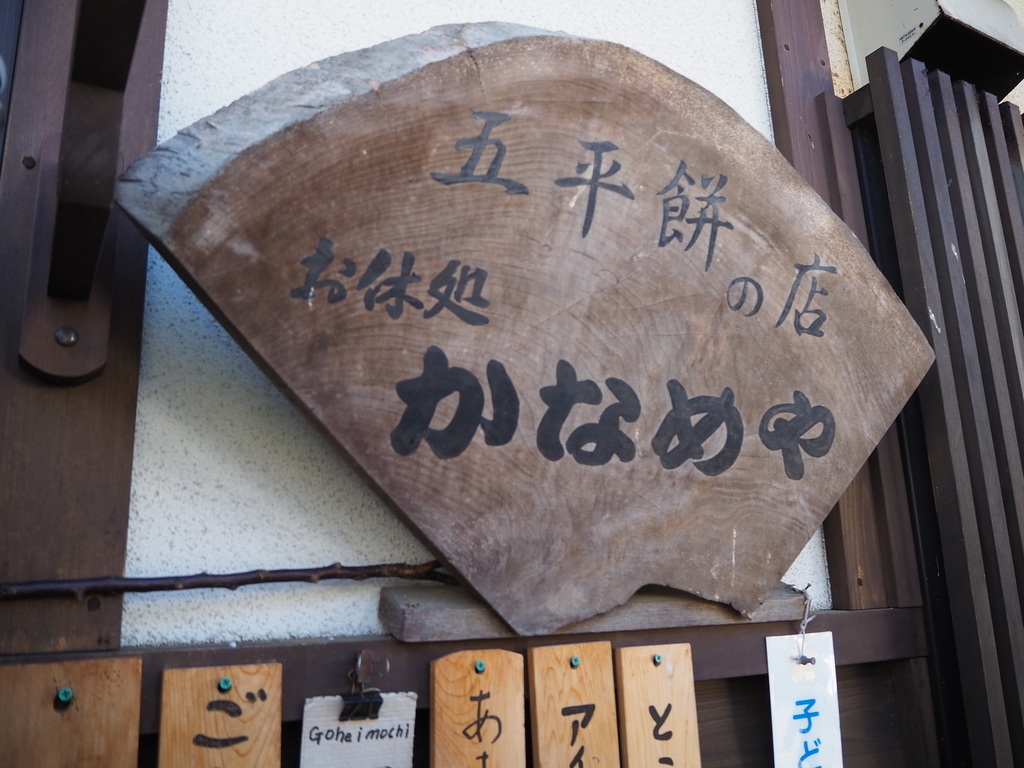 五平餅の店
お休処
かなめや
ご
Goheimochi
あ
アイ
と
子ど